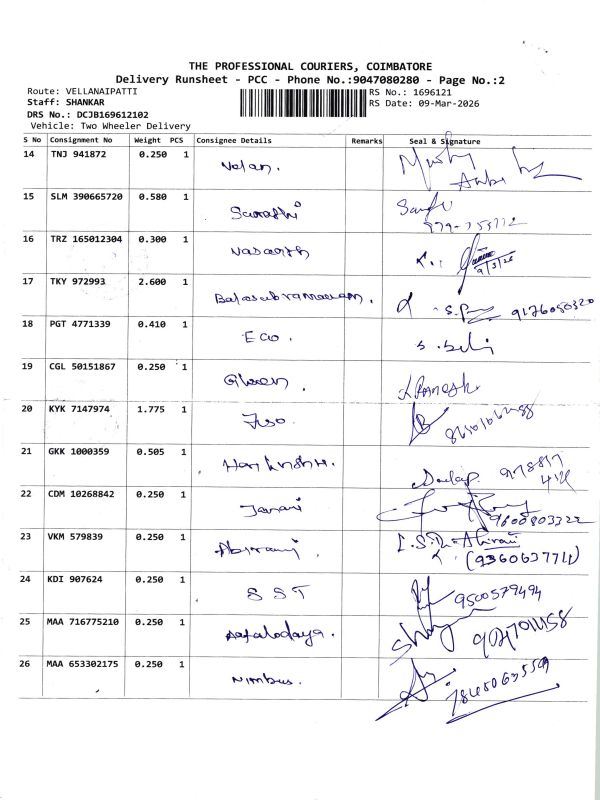 THE PROFESSIONAL COURIERS, COIMBATORE
Delivery Runsheet - PCC - Phone No.:9047080280 - Page No.:2
Route: VELLANAIPATTI RS No.: 1696121
Staff: SHANKAR RS Date: 09-Mar-2026
DRS No.: DCJB169612102
Vehicle: Two Wheeler Delivery
S No Consignment No Weight PCS Consignee Details Remarks Seal & Signature
14 TNJ 941872 0.250 1
15 SLM 390665720 0.580 1 Sarathi
16 TRZ 165012304 0.300 1 9/3/26
17 TKY 972993 2.600 1 Balasubramaniam. 9176050320
18 PGT 4771339 0.410 1 Eco.
19 CGL 50151867 0.250 1
20 KYK 7147974 1.775 1
21 GKK 1000359 0.505 1 Hari krishna.
22 CDM 10268842 0.250 1 Janani 9600803322
23 VKM 579839 0.250 1 Abirami (9360637711)
24 KDI 907624 0.250 1 SST 9500579494
25 MAA 716775210 0.250 1
26 MAA 653302175 0.250 1 Nimbus. 7845063559